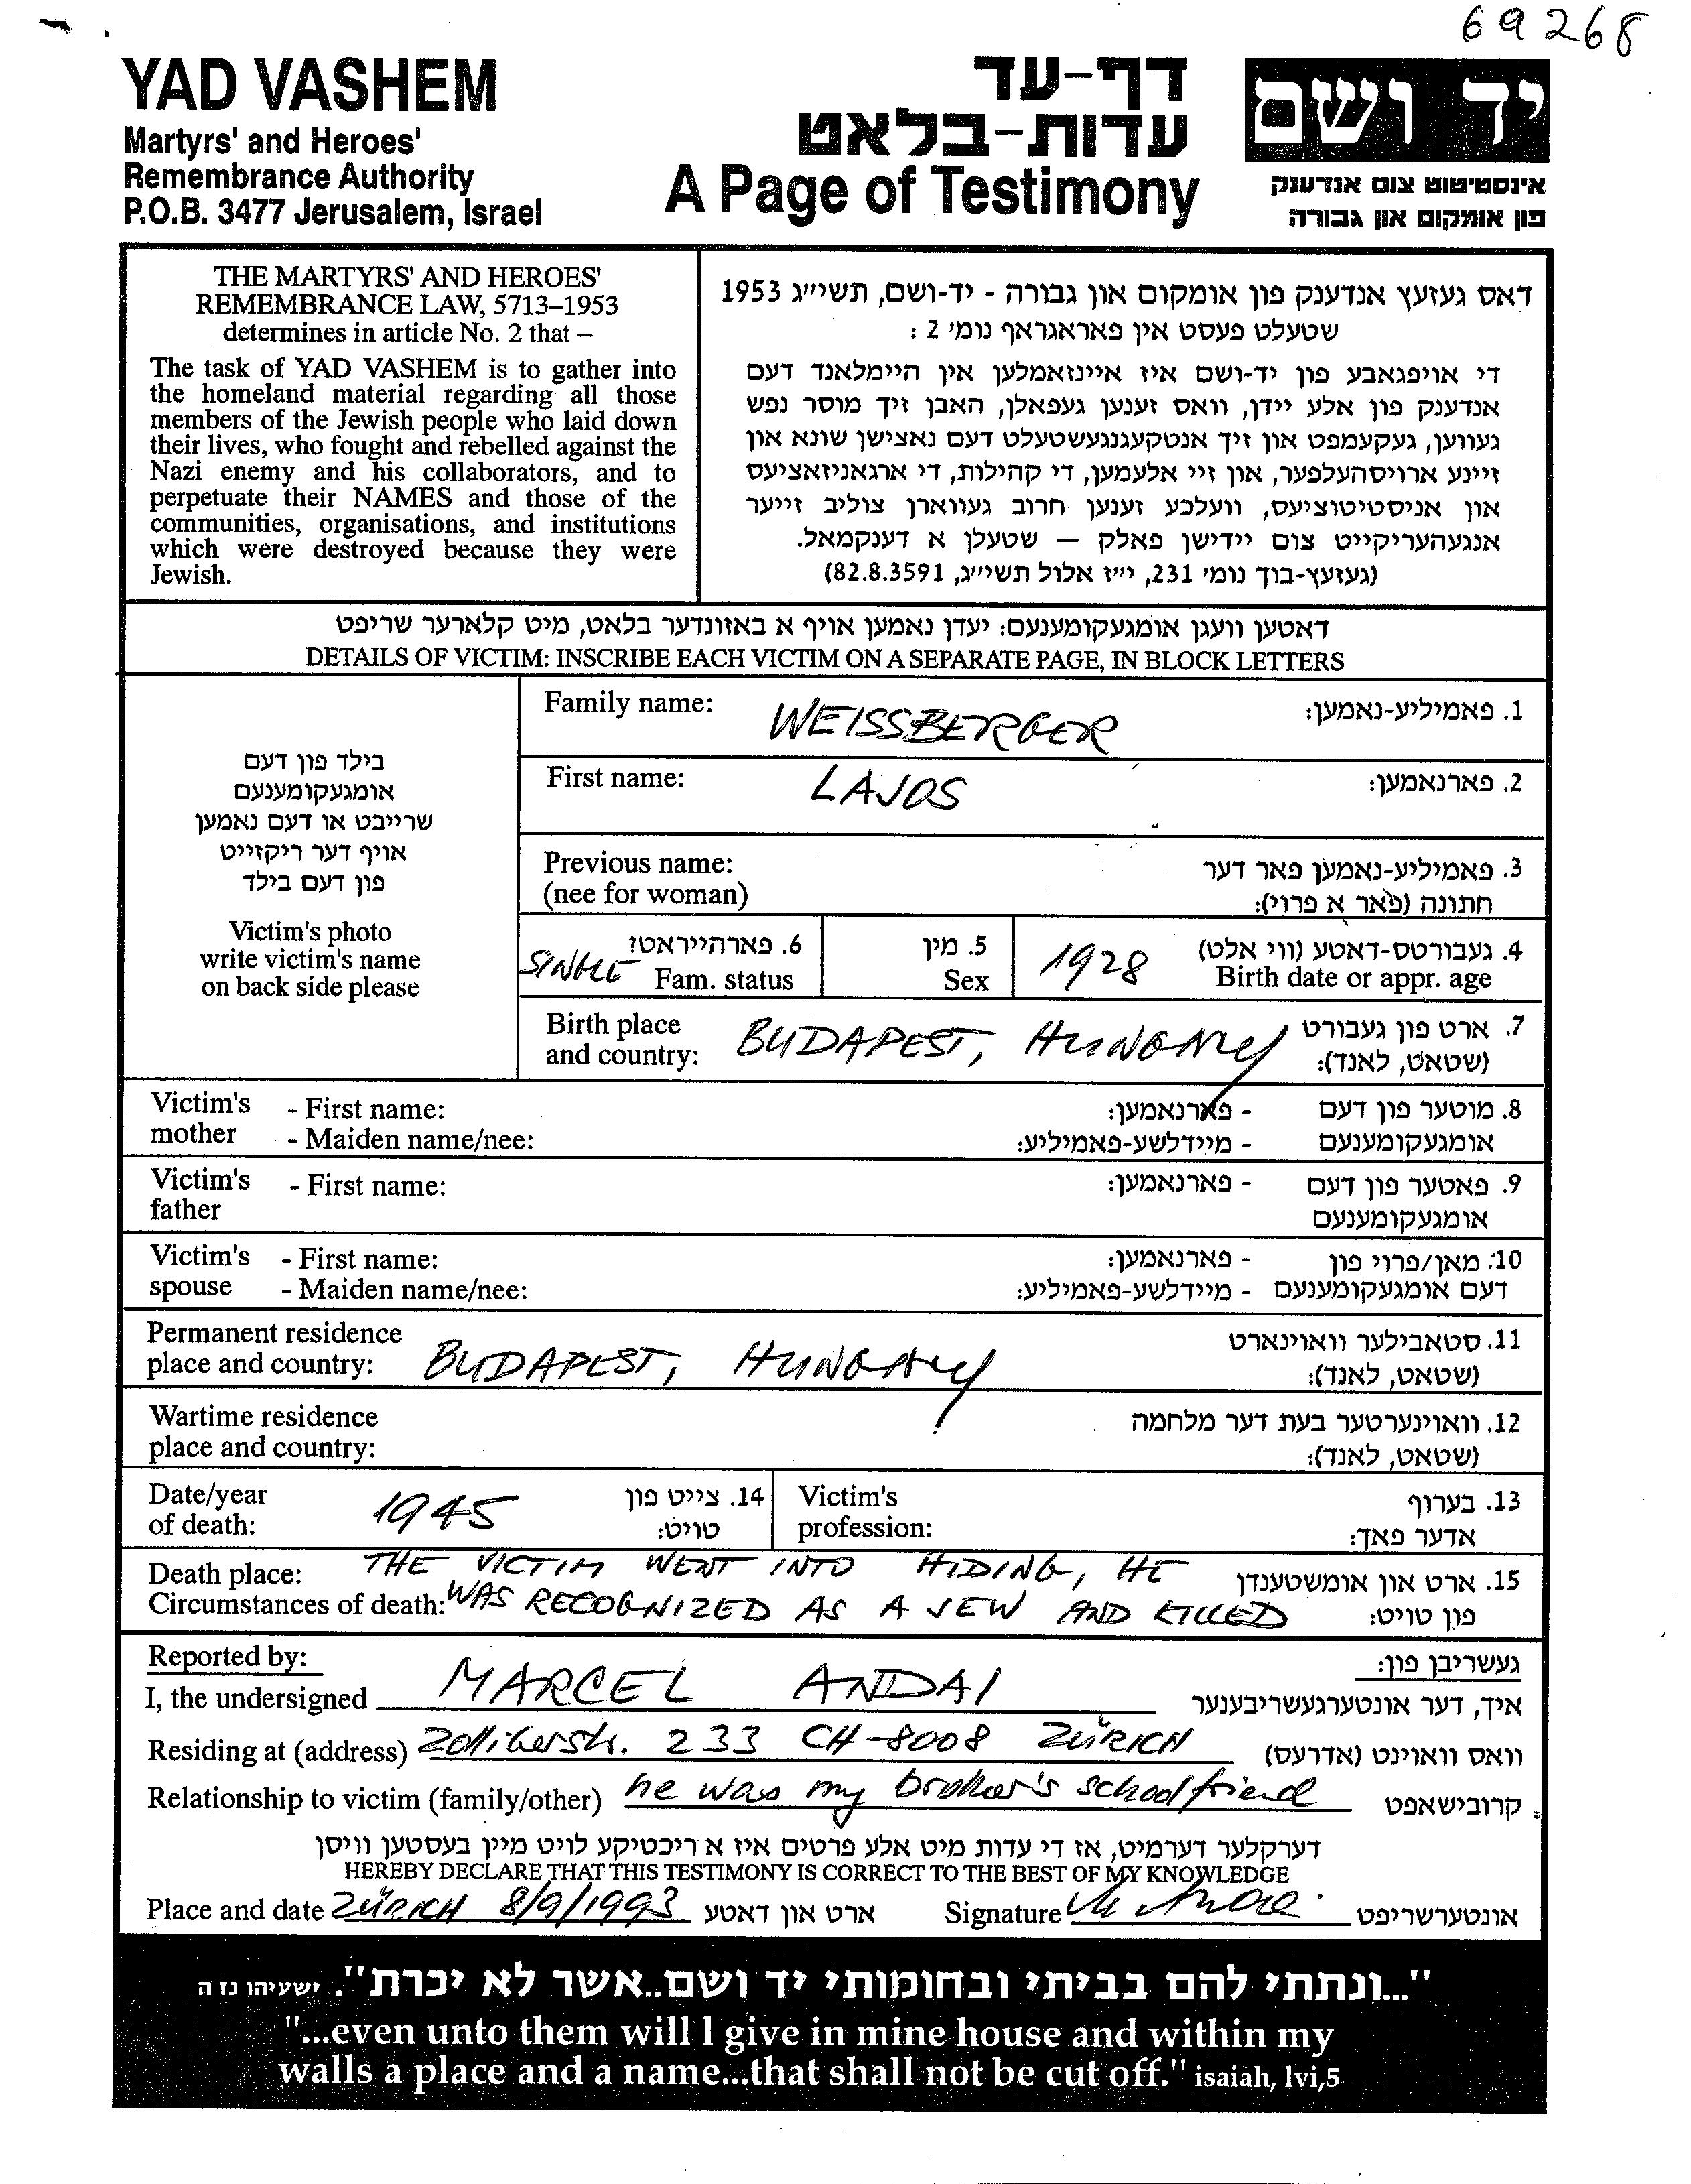 69268
YAD VASHEM
Martyrs' and Heroes'
Remembrance Authority
P.O.B. 3477 Jerusalem, Israel
דף-עד
עדות-בלאט
A Page of Testimony
יד ושם
אינסטיטוט צום אנדענק
פון אומקום און גבורה
THE MARTYRS' AND HEROES'
REMEMBRANCE LAW, 5713–1953
determines in article No. 2 that –
The task of YAD VASHEM is to gather into
the homeland material regarding all those
members of the Jewish people who laid down
their lives, who fought and rebelled against the
Nazi enemy and his collaborators, and to
perpetuate their NAMES and those of the
communities, organisations, and institutions
which were destroyed because they were
Jewish.
דאס געזעץ אנדענק פון אומקום און גבורה - יד-ושם, תשי״ג 1953
שטעלט פעסט אין פאראגראף נומ׳ 2 :
די אויפגאבע פון יד-ושם איז איינזאמלען אין היימלאנד דעם
אנדענק פון אלע יידן, וואס זענען געפאלן, האבן זיך מוסר נפש
געווען, געקעמפט און זיך אנטקעגנגעשטעלט דעם נאצישן שונא און
זיינע ארויסהעלפער, און זיי אלעמען, די קהילות, די ארגאניזאציעס
און אניסטיטוציעס, וועלכע זענען חרוב געווארן צוליב זייער
אנגעהעריקייט צום יידישן פאלק — שטעלן א דענקמאל.
(געזעץ-בוך נומ׳ 231, י״ז אלול תשי״ג, 82.8.3591)
דאטען וועגן אומגעקומענעם: יעדן נאמען אויף א באזונדער בלאט, מיט קלארער שריפט
DETAILS OF VICTIM: INSCRIBE EACH VICTIM ON A SEPARATE PAGE, IN BLOCK LETTERS
בילד פון דעם
אומגעקומענעם
שרייבט או דעם נאמען
אויף דער ריקזייט
פון דעם בילד
Victim's photo
write victim's name
on back side please
Family name: WEISSBERGER 1. פאמיליע-נאמען:
First name: LAJOS 2. פארנאמען:
Previous name: 3. פאמיליע-נאמען פאר דער
(nee for woman) חתונה (פאר א פרוי):
SINGLE 6. פארהייראט? 5. מין 1928 4. געבורטס-דאטע (ווי אלט)
Fam. status Sex Birth date or appr. age
Birth place BUDAPEST, HUNGARY 7. ארט פון געבורט
and country: (שטאט, לאנד):
Victim's - First name: - פארנאמען: 8. מוטער פון דעם
mother - Maiden name/nee: - מיידלשע-פאמיליע: אומגעקומענעם
Victim's - First name: - פארנאמען: 9. פאטער פון דעם
father אומגעקומענעם
Victim's - First name: - פארנאמען: 10. מאן/פרוי פון
spouse - Maiden name/nee: - מיידלשע-פאמיליע: דעם אומגעקומענעם
Permanent residence 11. סטאבילער וואוינארט
place and country: BUDAPEST, HUNGARY (שטאט, לאנד):
Wartime residence 12. וואוינערטער בעת דער מלחמה
place and country: (שטאט, לאנד):
Date/year 1945 14. צייט פון Victim's 13. בערוף
of death: טויט: profession: אדער פאך:
Death place: THE VICTIM WENT INTO HIDING, HE 15. ארט און אומשטענדן
Circumstances of death: WAS RECOGNIZED AS A JEW AND KILLED פון טויט:
Reported by: געשריבן פון:
I, the undersigned MARCEL ANDAI איך, דער אונטערגעשריבענער
Residing at (address) Zollikerstr. 233 CH-8008 ZÜRICH וואס וואוינט (אדרעס)
Relationship to victim (family/other) he was my brother's schoolfriend קרובישאפט
דערקלער דערמיט, אז די עדות מיט אלע פרטים איז א ריכטיקע לויט מיין בעסטען וויסן
HEREBY DECLARE THAT THIS TESTIMONY IS CORRECT TO THE BEST OF MY KNOWLEDGE
Place and date ZÜRICH 8/9/1993 ארט און דאטע Signature אונטערשריפט
"...ונתתי להם בביתי ובחומותי יד ושם..אשר לא יכרת". ישעיהו נו ה
"...even unto them will I give in mine house and within my
walls a place and a name...that shall not be cut off." isaiah, lvi,5